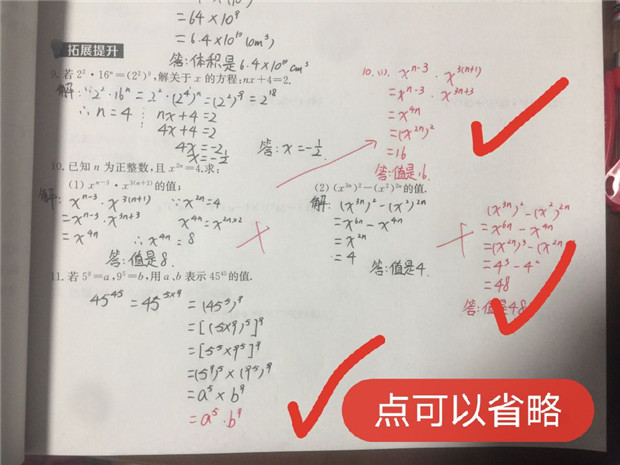 =64×10⁹
=6.4×10¹⁰(cm³)
答:体积是6.4×10¹⁰cm³
拓展提升
9. 若 2²·16ⁿ=(2²)⁹,解关于 x 的方程:nx+4=2.
解:∵2²·16ⁿ=2²·(2⁴)ⁿ=(2²)⁹=2¹⁸
∴n=4
nx+4=2
4x+4=2
4x=-2
x=-1/2
答:x=-1/2.
10. 已知 n 为正整数,且 x²ⁿ=4.求:
(1) xⁿ⁻³·x³⁽ⁿ⁺¹⁾的值;
解: xⁿ⁻³·x³⁽ⁿ⁺¹⁾ ∵x²ⁿ=4
=xⁿ⁻³·x³ⁿ⁺³ x⁴ⁿ=x²ⁿˣ²
=x⁴ⁿ ∴x⁴ⁿ=8
答:值是8.
10. (1). xⁿ⁻³·x³⁽ⁿ⁺¹⁾
=xⁿ⁻³·x³ⁿ⁺³
=x⁴ⁿ
=(x²ⁿ)²
=16
答:值是16.
(2) (x³ⁿ)²-(x²)²ⁿ的值.
解: (x³ⁿ)²-(x²)²ⁿ
=x⁶ⁿ-x⁴ⁿ
=x²ⁿ
=4
答:值是4.
(x³ⁿ)²-(x²)²ⁿ
=x⁶ⁿ-x⁴ⁿ
=(x²ⁿ)³-(x²ⁿ
=4³-4²
=48
答:值是48
11. 若 5⁹=a,9⁵=b,用 a、b 表示 45⁴⁵的值.
45⁴⁵=45⁵ˣ⁹=(45⁵)⁹
=[(5×9)⁵]⁹
=[5⁵×9⁵]⁹
=(5⁹)⁵×(9⁵)⁹
=a⁵×b⁹
=a⁵·b⁹
点可以省略